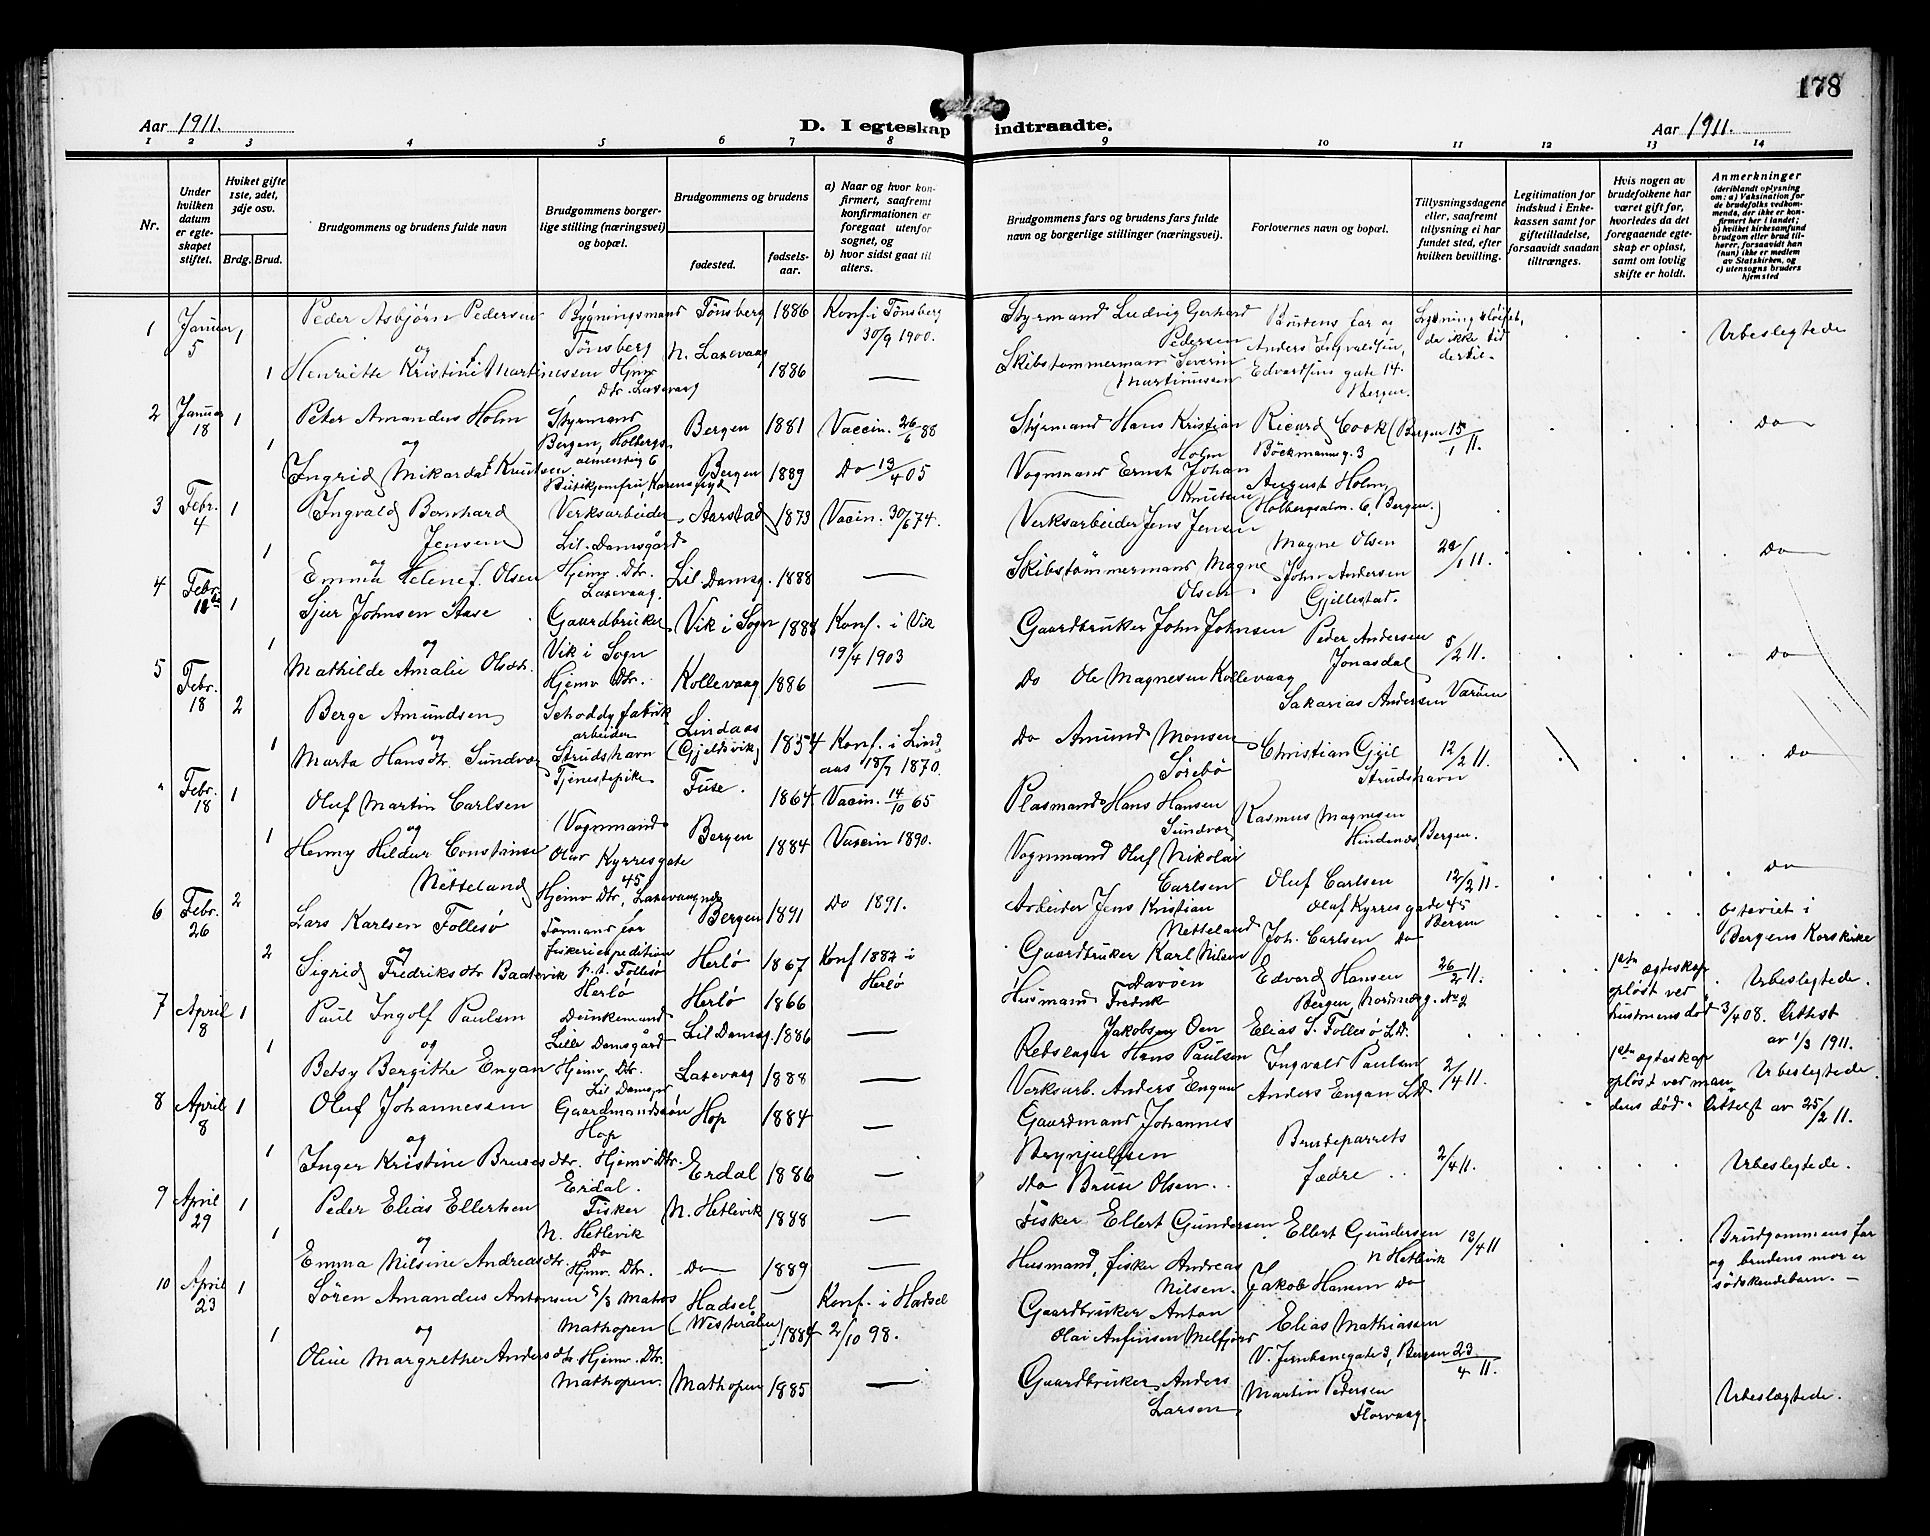 178
Aar 1911.
D. I egteskap indtraadte.
Aar 1911.
1 2 3 4 5 6 7 8 9 10 11 12 13 14
Nr.
Under hvilken datum er egteskapet stiftet.
Hvilket gifte 1ste, 2det, 3dje osv.
Brdg. Brud.
Brudgommens og brudens fulde navn
Brudgommens borgerlige stilling (næringsvei) og bopæl.
Brudgommens og brudens
fødested.
fødselsaar.
a) Naar og hvor konfirmert, saafremt konfirmationen er foregaat utenfor sognet, og
b) hvor sidst gaat til alters.
Brudgommens fars og brudens fars fulde navn og borgerlige stillinger (næringsvei).
Forlovernes navn og bopæl.
Tillysningsdagene eller, saafremt tillysning ei har fundet sted, efter hvilken bevilling.
Legitimation for indskud i Enkekassen samt for giftetilladelse, forsaavidt saadan tiltrænges.
Hvis nogen av brudefolkene har været gift før, hvorledes da det foregaaende egteskap er opløst, samt om lovlig skifte er holdt.
Anmerkninger
(deriblandt oplysning om: a) Vaksination for de brudefolks vedkommende, der ikke er konfirmert her i landet; b) hvilket kirkesamfund brudgom eller brud tilhører, forsaavidt han (hun) ikke er medlem av Statskirken, og c) utensogns bruders hjemsted
1 Januar 5 1 Peder Asbjørn Pedersen Bygningsmand Tønsberg Tønsberg 1886 Konf. i Tønsberg 30/9 1900.
og
1 Henriette Kristine Martinussen Hjmv. Dtr. Laxevaag N. Laxevaag 1886 —
Styrmand Ludvig Gerhard Pedersen
Skibstømmermand Severin Martinussen
Brudens far og Anders Ingvaldsen, Edvardsens gate 14. Bergen.
Ubeslegtede
2 Januar 18 1 Peter Amandus Holm Styrmand Bergen, Holbergsalmending 6 Bergen 1881 Vaccin. 26/6 88
og
1 Ingrid Mikarda Knutsen Butikjomfru, Bergen 1889 Do 13/4 05
Styrmand Hans Kristian Holm
Vognmand Ernst Johan Knutsen
Ricard Cook (Bergen Böckmannsg. 3
August Holm, Holbergsalm. 6, Bergen.)
15/1 11.
Do
3 Febr. 4 1 Ingvald Bernhard Jensen Verksarbeider Lil. Damsgård Aarstad 1873 Vaccin. 30/6 74.
og
1 Emma Helene Olsen Hjemv. Dtr. Laxevaag. Lil. Damsg. 1888 —
Verksarbeider Jens Jensen
Skibstømmermand Magne Olsen
Magne Olsen
John Andersen Gjellestad.
29/1 11.
Do
4 Febr. 1 Sjur Johnsen Aase Gaardbruker Vik i Sogn Vik i Sogn 1888 Konf. i Vik 19/4 1903
og
1 Mathilde Amalie Olsdtr. Hjemv. Dtr. Kollevaag 1886 —
Gaardbruker John Johnsen
Do Ole Magnesen Kollevaag
Peder Andersen Jonasdal
Sakarias Andersen Varøen
5/2 11.
Do
5 Febr. 18 2 Berge Amundsen Schoddyfabrikarbeider Strudshavn Lindaas (Gjeldsvik) 1854 Konf. i Lindaas 18/9 1870.
og
1 Marta Hansdtr. Sundvor Tjenestepike Fuse. 1864 Vaccin. 14/10 65
Do Amund Monsen Sørebø
Plasmand Hans Hansen Sundvor
Christian Gjil Strudshavn
Rasmus Magnesen Hindenæs, Bergen.
12/2 11.
Do
" Febr. 18 1 Oluf Martin Carlsen Vognmand Olav Kyrresgate 45 Bergen 1884 Vaccin 1890.
og
1 Henny Hildur Constanse Netteland Hjemv. Dtr, Laxevaagnes Bergen 1891 Do 1891.
Vognmand Oluf Nikolai Carlsen
Arbeider Jens Kristian Netteland
Oluf Carlsen Oluf Kyrresgade 45 Bergen
Joh. Carlsen Do
12/2 11.
Do
6 Febr. 26 2 Lars Karlsen Follesø Formand for fiskeriexpedition p.t. Follesø Herlø 1867 Konf 1882 i Herlø
og
2 Sigrid Fredriksdtr Baatevik Herlø Herlø 1866
Gaardbruker Karl Nilsen Davøen
Husmand Fredrik Jakobsen Oen
Edvard Hansen Bergen, Nordnæsg. No 2
Elias S. Follesø L.D.
26/2 11.
1ste egteskap opløst ved hustruens død 3/4 08. Attest av 1/3 1911.
1ste egteskap opløst ved mandens død. Attest av 25/2 11.
Bergens Korskirke
Ubeslegtede.
7 April 8 1 Paul Ingolf Paulsen Lille Damsgård Lil Damsg. 1886 —
og
1 Betsy Bergithe Engan Hjemv. Dtr. Lil Damsgrd Laxevaag 1888 —
Rebslager Hans Paulsen
Verksarb. Anders Engan
Ingvald Paulsen
Anders Engan L.D.
2/4 11.
Ubeslegtede
8 April 8 1 Oluf Johannessen Gaardmandssøn Hop Hop 1884 —
og
1 Inger Kristine Brusesdtr. Hjemv. Dtr. Erdal. Erdal 1886 —
Gaardmand Johannes Brynjulfsen
Do Bruse Olsen.
Brudeparrets fædre
2/4 11.
Ubeslegtede.
9 April 29 1 Peder Elias Ellertsen Fisker N. Hetlevik N. Hetlevik 1888 —
og
1 Emma Nilsine Andreasdtr. Do Hjmv. Dtr. Do 1889 —
Fisker Ellert Gundersen
Husmand, fisker Andreas Nilsen.
Ellert Gundersen N Hetlevik
Jakob Hansen Do
13/4 11
Brudgommens far og brudens mor er södskendebarn. —
10 April 23 1 Søren Amandus Antonsen Mathopen Hadsel (Westerålen) 1884 Konf. i Hadsel 2/10 98.
og
1 Oline Margrethe Andersdtr. Hjemv. Dtr. Mathopen. Mathopen 1885 —
Gaardbruker Anton Olai Anfinsen Melfjord
Gaardbruker Anders Larsen.
Elias Mathiassen V. Jernbanegate, Bergen
Martin Pedersen Florvaag.
23/4 11.
Ubeslægtede.